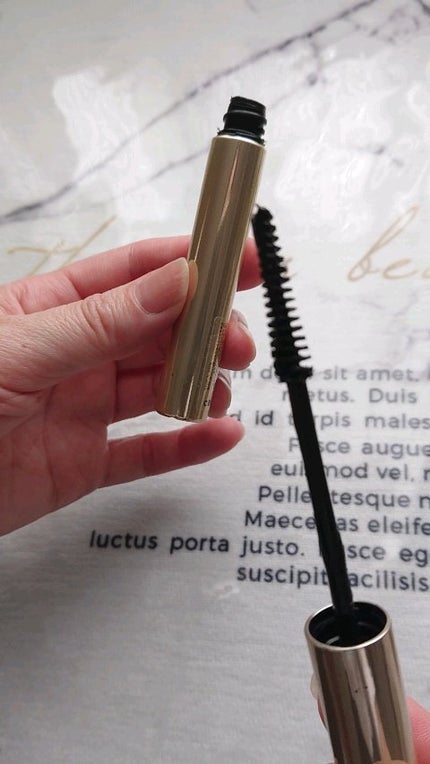 bea
sit amet,
metus. Duis
id turpis males
Fusce augue
euismod vel,
Pellentesque
Maecenas eleife
luctus porta justo. Fusce eg
suscipit facilisis